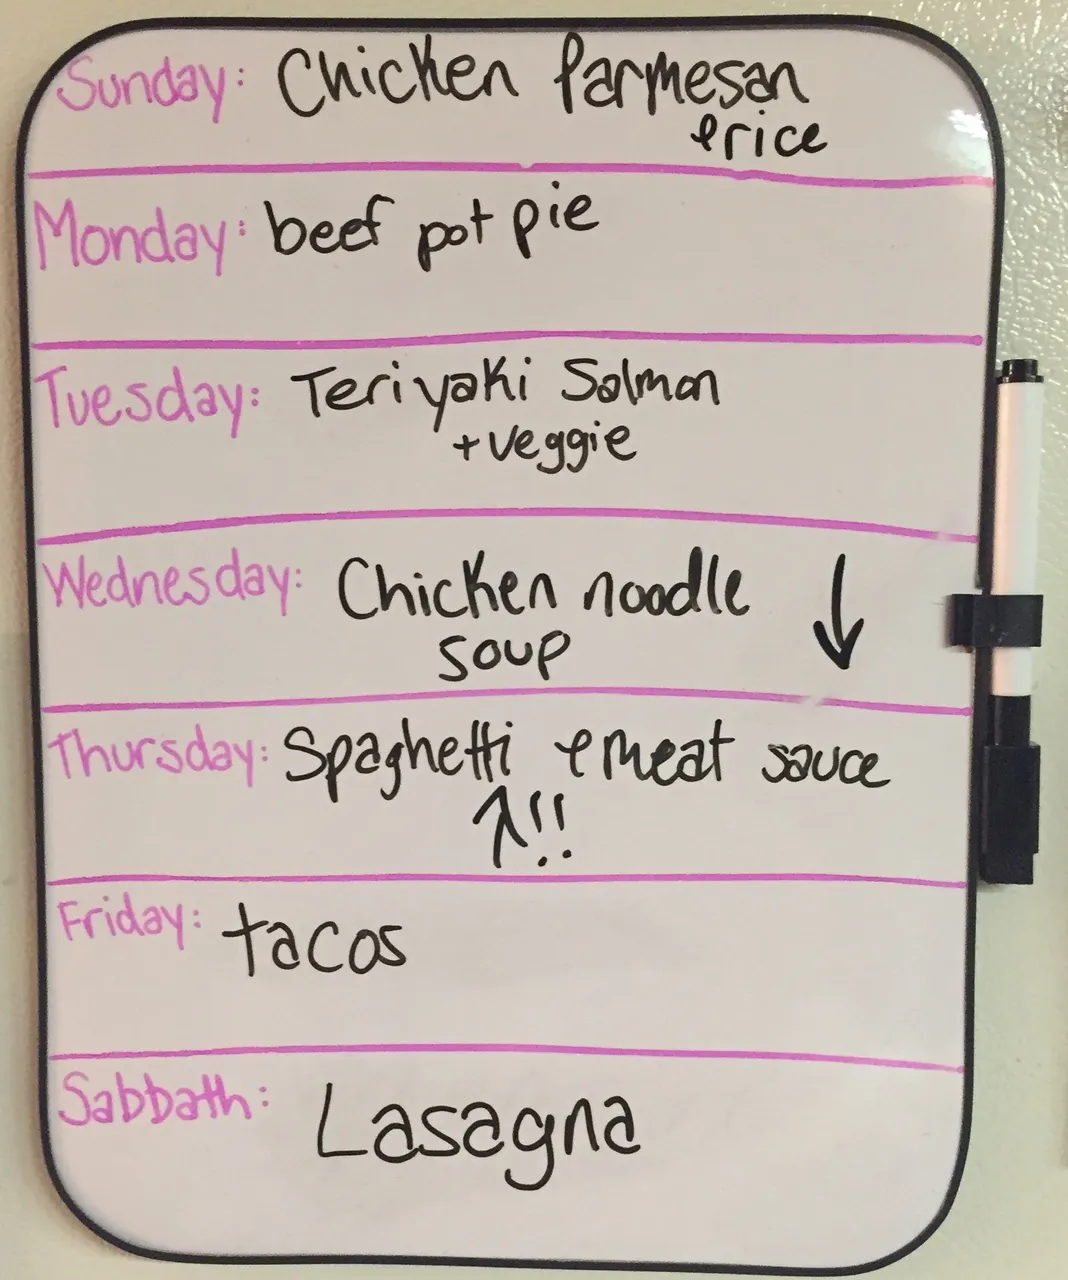 Sunday: Chicken Parmesan
& rice
Monday: beef pot pie
Tuesday: Teriyaki Salmon
+ veggie
Wednesday: Chicken noodle ↓
soup
Thursday: Spaghetti & meat sauce
↑!!
Friday: tacos
Sabbath: Lasagna